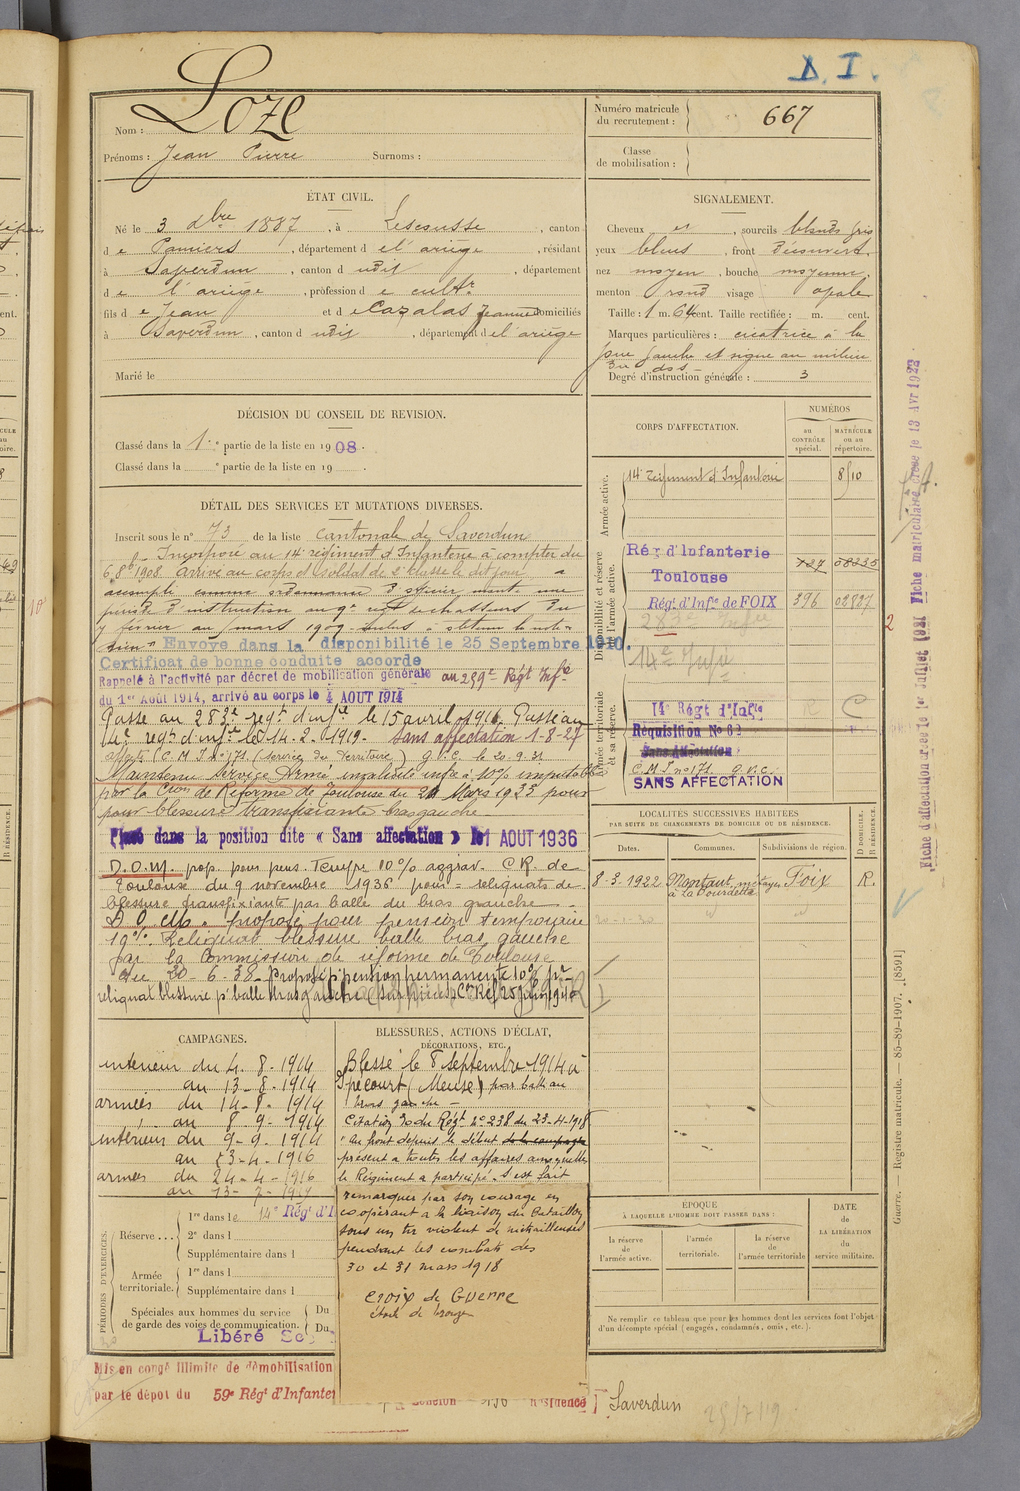 D. I.
Nom : Loze
Prénoms : Jean Pierre Surnoms :
Numéro matricule du recrutement : 667
Classe de mobilisation :
ÉTAT CIVIL.
Né le 3 dbre 1887, à Lescousse, canton
de Pamiers, département de l'ariège, résidant
à Saverdun, canton dudit, département
de l'ariège, profession de cultr
fils de Jean et de Cazalas Jeanne domiciliés
à Saverdun, canton dudit, département de l'ariège
Marié le
SIGNALEMENT.
Cheveux et, sourcils blonds gris
yeux bleus, front découvert,
nez moyen, bouche moyenne,
menton rond visage opale
Taille : 1 m. 64 cent. Taille rectifiée : m. cent.
Marques particulières : cicatrice à la
joue gauche et signe au milieu
du dos
Degré d'instruction générale : 3
DÉCISION DU CONSEIL DE REVISION.
Classé dans la 1re partie de la liste en 1908.
Classé dans la e partie de la liste en 19 .
CORPS D'AFFECTATION.
NUMÉROS
au CONTRÔLE spécial.
MATRICULE ou au répertoire.
Armée active.
14e régiment d'Infanterie 8/10
Disponibilité et réserve de l'armée active.
Rég. d'Infanterie
Toulouse
Régt. d'Infie de FOIX 396
283e Infie
14e Infie
Armée territoriale et sa réserve.
14e Régt d'Infie
Réquisition No 82
Sans Affectation
C.M.I. no 171. G.V.C.
SANS AFFECTATION
DÉTAIL DES SERVICES ET MUTATIONS DIVERSES.
Inscrit sous le no 73 de la liste cantonale de Saverdun
Incorporé au 14e régiment d'Infanterie à compter du
6 8bre 1908. Arrivé au corps et soldat de 2e classe le dit jour a
accompli comme ordonnance d'officier monté une
période d'instruction au 9e regt de chasseurs du
février au mars 1909.
Envoyé dans la disponibilité le 25 Septembre 1910.
Certificat de bonne conduite accordé
Rappelé à l'activité par décret de mobilisation générale au 259e Régt Infie
du 1er Août 1914, arrivé au corps le 4 AOUT 1914
Passé au 283e regt d'infie le 15 avril 1916. Passé au
14e regt d'infie le 14-2-1919. Sans affectation 1-8-27
affecté C M I No 171 (Service du Territoire) G.V.C. le 20.9.31
Maintenu Service Armé invalidité infre à 10% imputable
par la Cion de Réforme de Toulouse du 21 Mars 1933 pour
pour blessure transfixiante bras gauche
Placé dans la position dite « Sans affectation » le 1 AOUT 1936
D.O.M. prop. pour pens. Tempre 10% aggrav. C.R. de
Toulouse du 9 novembre 1936 pour = reliquats de
blessure transfixiante par balle du bras gauche.
D.O.M. proposé pour pension temporaire
10%. Reliquat blessure balle bras gauche
par la Commission de réforme de Toulouse
du 30-6-38. Proposé p' pension permanente 10% pr
reliquat blessure pr balle bras gauche (sur pièces) Con Réf. 25 juin 1940
LOCALITÉS SUCCESSIVES HABITÉES
PAR SUITE DE CHANGEMENTS DE DOMICILE OU DE RÉSIDENCE.
Dates. Communes. Subdivisions de région. D DOMICILE. R RÉSIDENCE.
8-3-1922 Montaut métayer à La Bourdette Foix R.
20-1-30
CAMPAGNES.
intérieur du 4.8.1914
au 13-8-1914
armées du 14-8-1914
au 8-9-1914
intérieur du 9-9-1914
au 23-4-1916
armées du 24-4-1916
au 13-7-1917
BLESSURES, ACTIONS D'ÉCLAT,
DÉCORATIONS, ETC.
Blessé le 8 septembre 1914 à
Ipécourt (Meuse) par balle au
bras gauche -
Citation do du Régt No 238 du 23-4-1918
"Au front depuis le début de la campagne
présent à toutes les affaires auxquelles
le Régiment a participé. S'est fait
remarquer par son courage en
coopérant à la liaison du Bataillon
sous un tir violent de mitrailleuses
pendant les combats des
30 et 31 mars 1918
Croix de Guerre
étoile de bronze
PÉRIODES D'EXERCICES.
Réserve... 1re dans le 14e Régt d'I
2e dans l
Supplémentaire dans l
Armée territoriale. 1re dans l
Supplémentaire dans l
Spéciales aux hommes du service Du
de garde des voies de communication. Du
Libéré
ÉPOQUE
À LAQUELLE L'HOMME DOIT PASSER DANS :
la réserve de l'armée active.
l'armée territoriale.
la réserve de l'armée territoriale
DATE de LA LIBÉRATION du service militaire.
Ne remplir ce tableau que pour les hommes dont les services font l'objet
d'un décompte spécial (engagés, condamnés, omis, etc.).
Mis en congé illimité de démobilisation
par le dépôt du 59e Régt d'Infante
échelon Résidence ] Saverdun
25/7/19
Fiche d'affectation créée le 1er Juillet 1921 Fiche matriculaire créée le 13 Avr 1922
Guerre. — Registre matricule. — 85-89-1907. [8591]